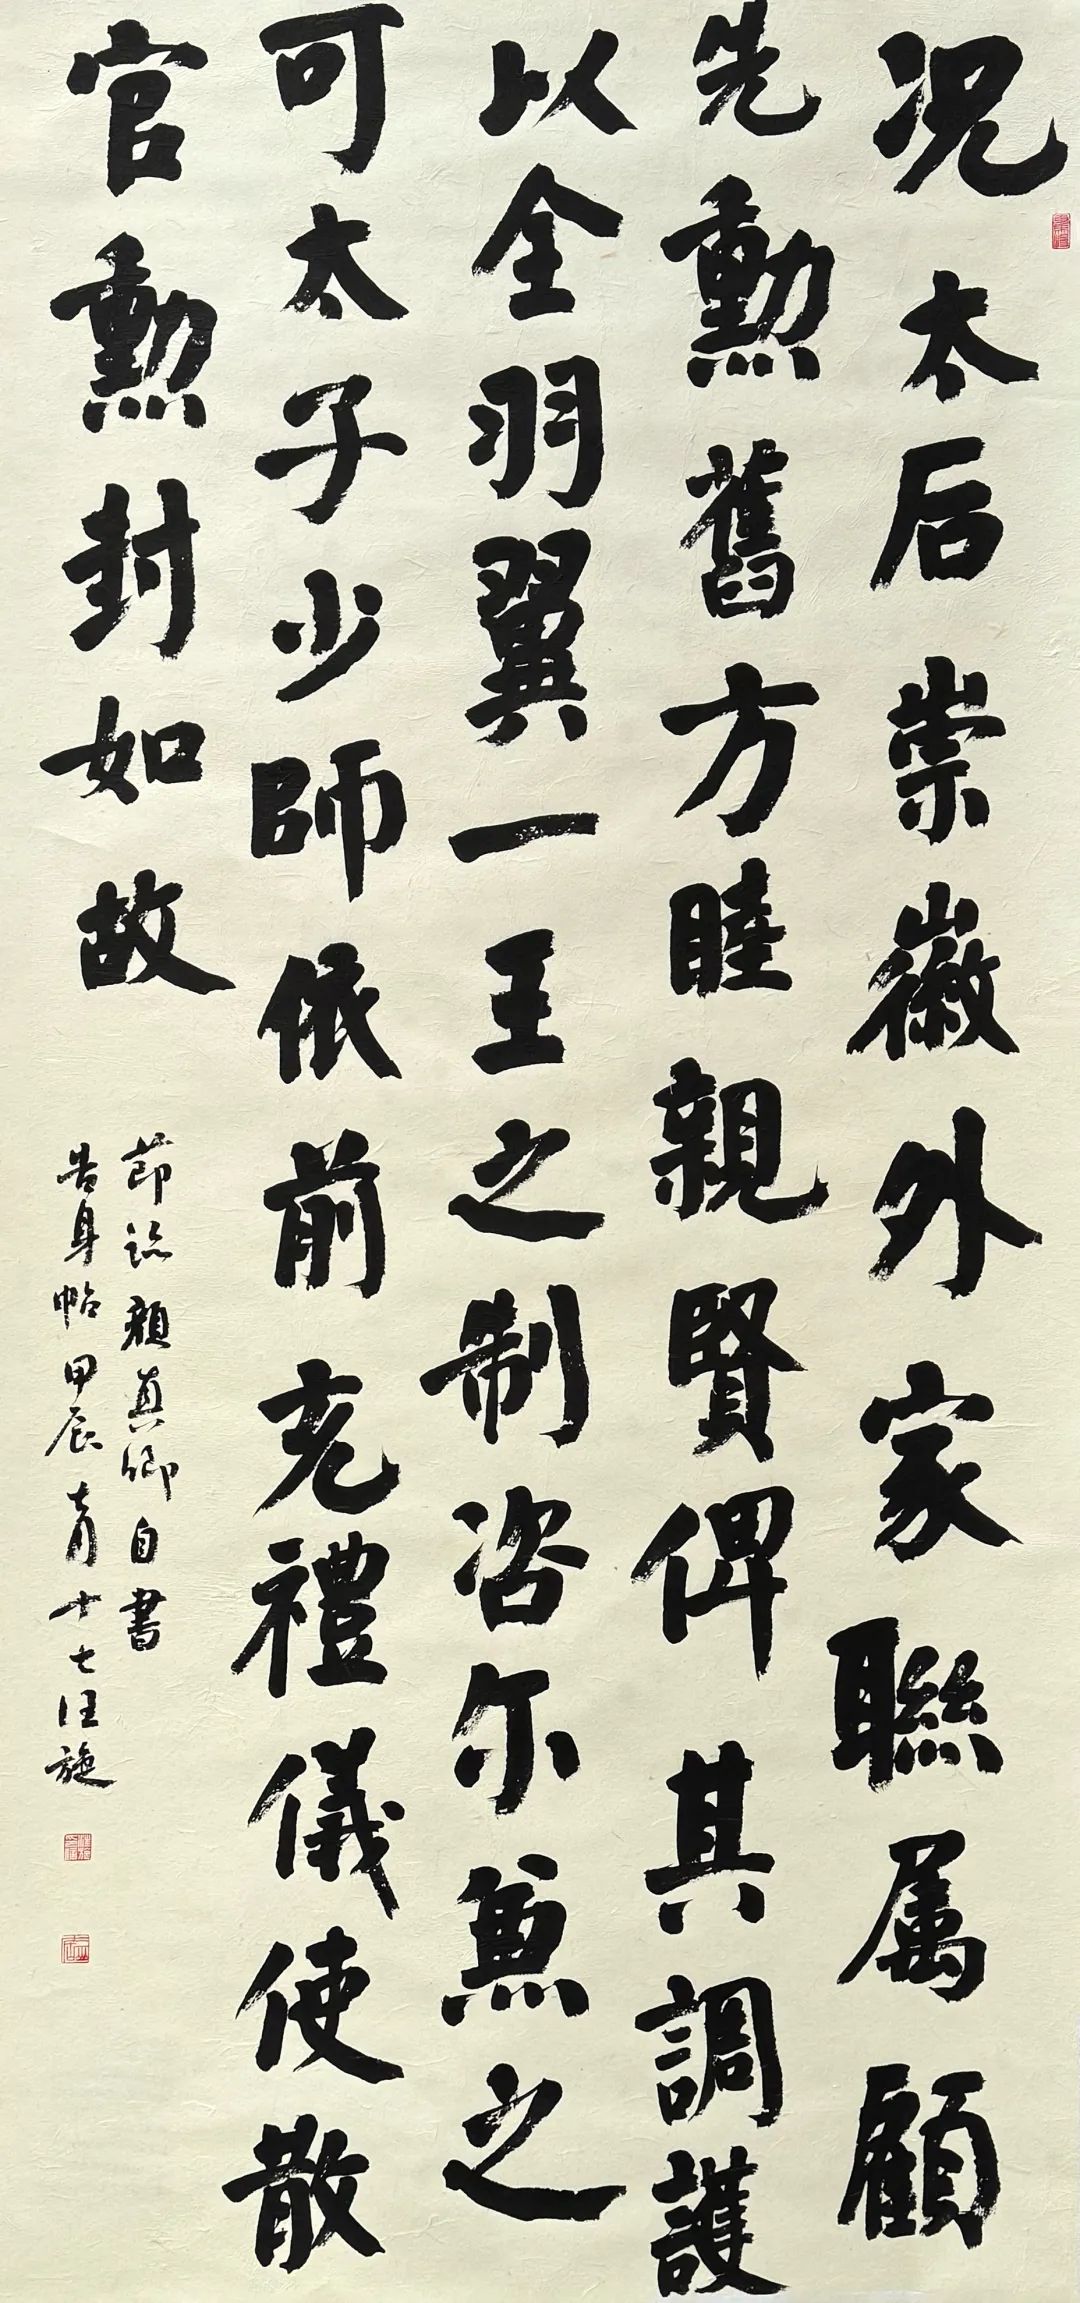 况太后崇徽外家聯属顧
先勳舊方睦親賢俾其調護
以全羽翼一王之制咨尔兼之
可太子少師依前充禮儀使散
官勳封如故
節臨顏真卿自書
告身帖甲辰十月十七汪施